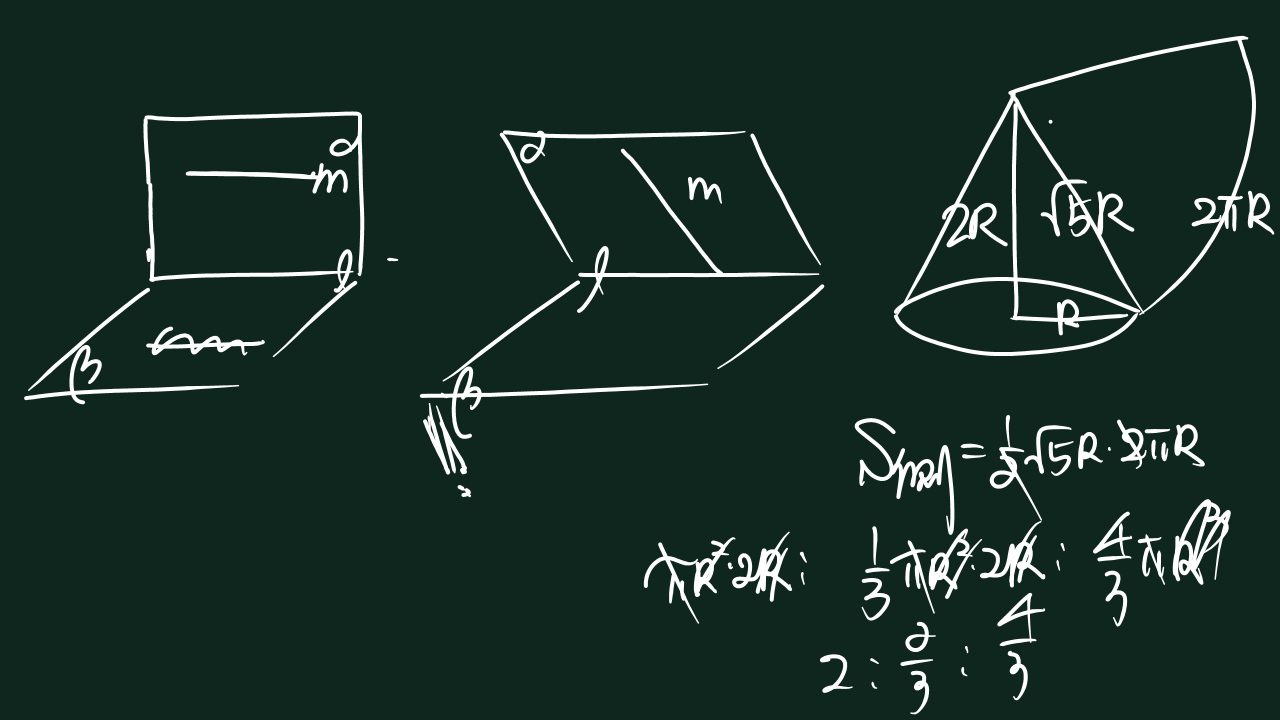 α
m
l
β
α
m
l
β
2R
√5R
2πR
R
= 1/2 √5R · 2πR
πR²·2R : 1/3 πR²·2R : 4/3 πR³
2 : 2/3 : 4/3